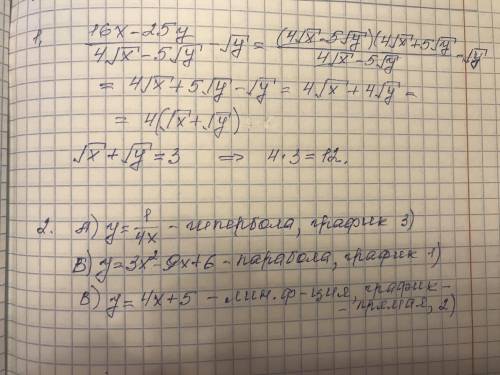 1. (16x-25y)/(4√x-5√y) - √y = ((4√x-5√y)(4√x+5√y))/(4√x-5√y) - √y
= 4√x+5√y-√y = 4√x+4√y =
= 4(√x+√y)
√x+√y=3 ⇒ 4·3=12.
2. А) y=1/4x - гипербола, график 3)
Б) y=3x²-9x+6 - парабола, график 1)
В) y=4x+5 - лин. ф-ция, график-
- прямая, 2)